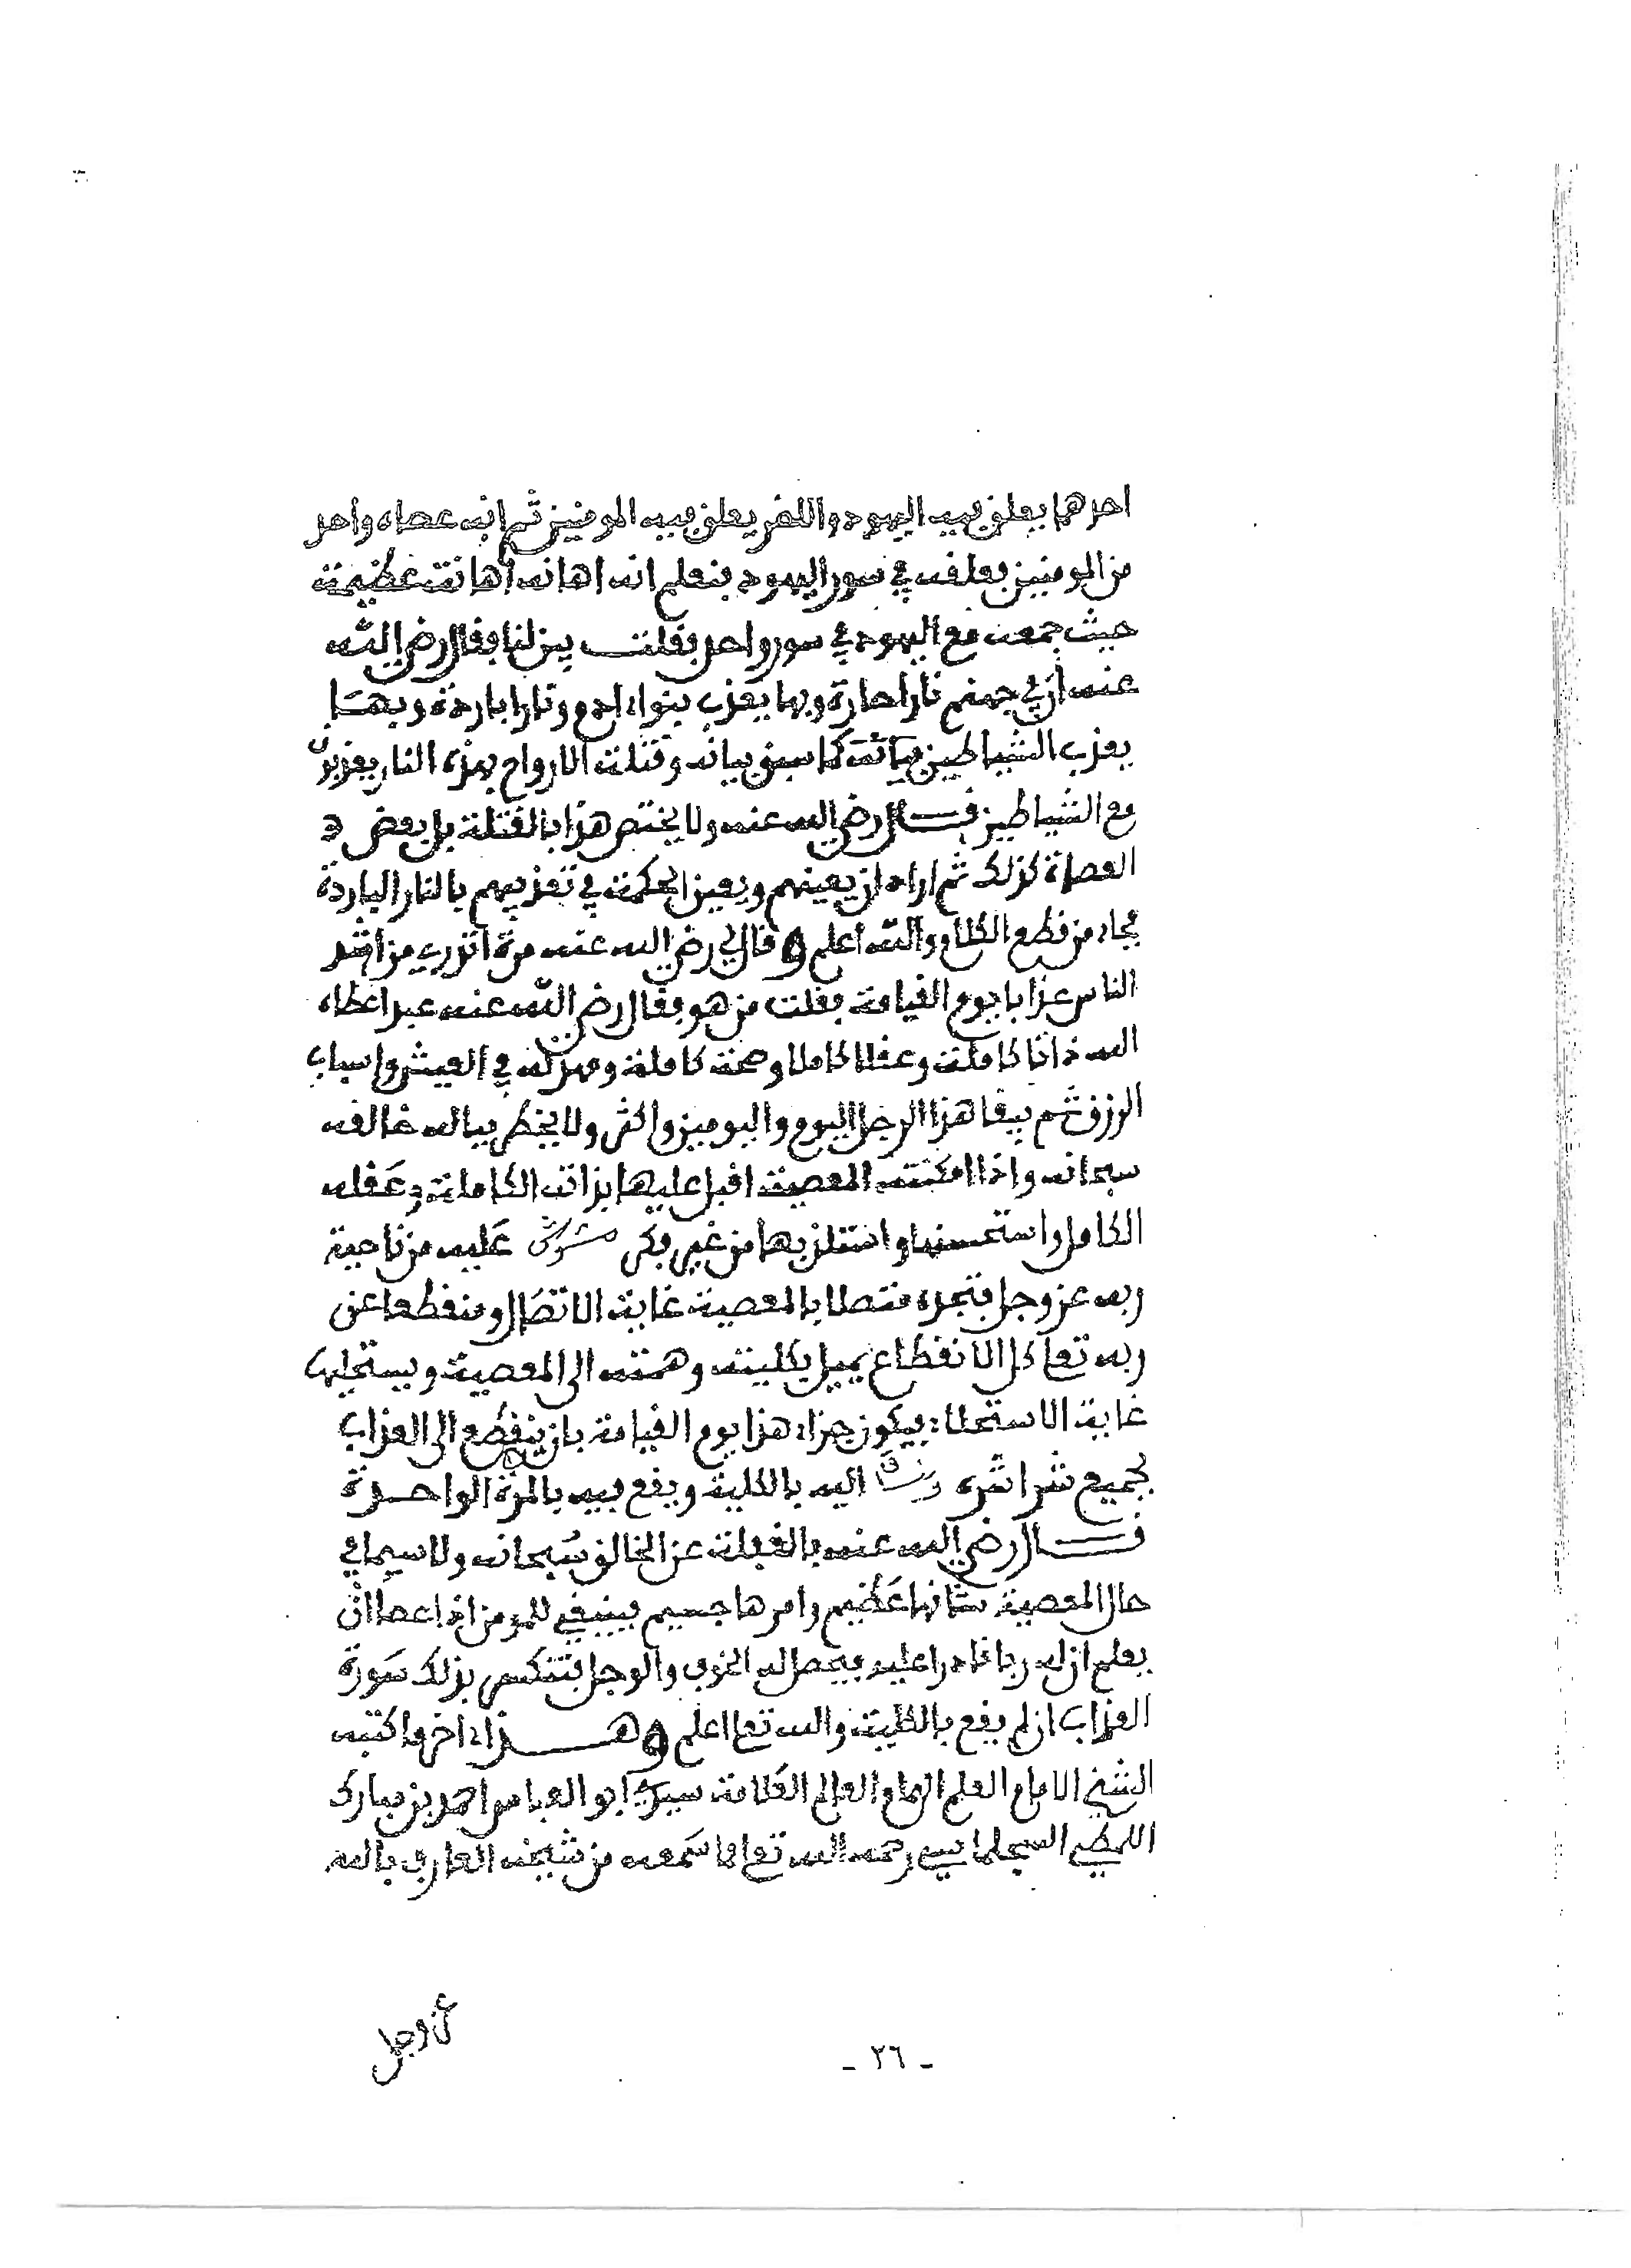 احدهما يعلق فيه اليهود والاخر يعلق فيه المومنين ثم انه عصاه واحد
من المومنين فعلقه في سور اليهود فنعلم انه اهانه اهانة عظيمة
حيث جمعه مع اليهود في سور واحد فقلت بين لنا فقال رضي الله
عنه ان في جهنم نارا حارة وبها يعذب بنواء ادم ونارا باردة وبها
يعذب الشياطين كما سبق بيانه وقتلة الارواح بهذه النار يعذبون
مع الشياطين قال رضي الله عنه ولا يختص هذا بالقتلة بل بعض
العصاة كذلك ثم اراد ان يعينهم ويعين الحكمة في تعذيبهم بالنار الباردة
فجاء من قطع الكلام والله اعلم وقال لي رضي الله عنه مرة اتدري من اشد
الناس عذابا يوم القيامة فقلت من هو فقال رضي الله عنه عبد اعطاه
الله ذاتا كاملة وعقلا كاملا وصحة كاملة ومهد له في العيش واسباب
الرزق ثم يبقا هذا الرجل اليوم واليومين واكثر ولا يخطر بباله خالقه
سبحانه واذا امكنته المعصية اقبل عليها بذاته الكاملة وعقله
الكامل واستحسنها واستلذ بها من غير فكر مشوش عليه من ناحية
ربه عز وجل فتجده متصلا بالمعصية غاية الاتصال ومنقطعا عن
ربه تعا كل الانقطاع يميل بكليته وهمته الى المعصية ويستحليها
غاية الاستحلاء فيكون جزاء هذا يوم القيامة بان ينقطع الى العذاب
بجميع شراشره وينساق اليه بالكلية ويقع فيه بالمرة الواحدة
قال رضي الله عنه بالغفلة عن الخالق سبحانه ولا سيما في
حال المعصية شانها عظيم وامرها جسيم فينبغي للمومن اذا عصا ان
يعلم ان له ربا قادرا عليه فيحصل له الخوف والوجل فتنكسر بذلك سورة
العذاب ان لم يقع بالكلية والله تعا اعلم وهذاء اخر ما كتبه
الشيخ الامام العلم الهمام العالم العلامة سيدي ابو العباس احمد بن مبارك
اللمطي السجلماسي رحمه الله تعا مما سمعه من شيخه العارف بالله
عز وجل
- ٢٦ -